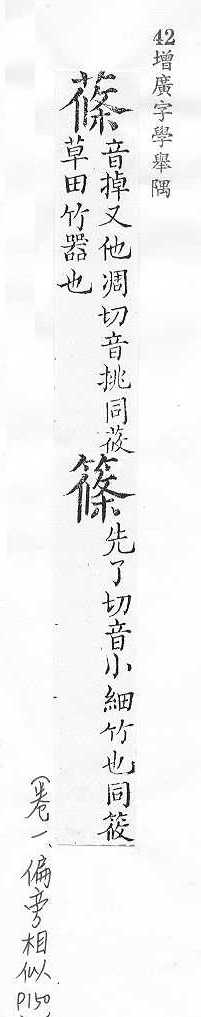 42增廣字學舉隅
蓧音掉又他凋切音挑同莜
草田竹器也
篠先了切音小細竹也同筱
(卷一、偏旁相似
P150